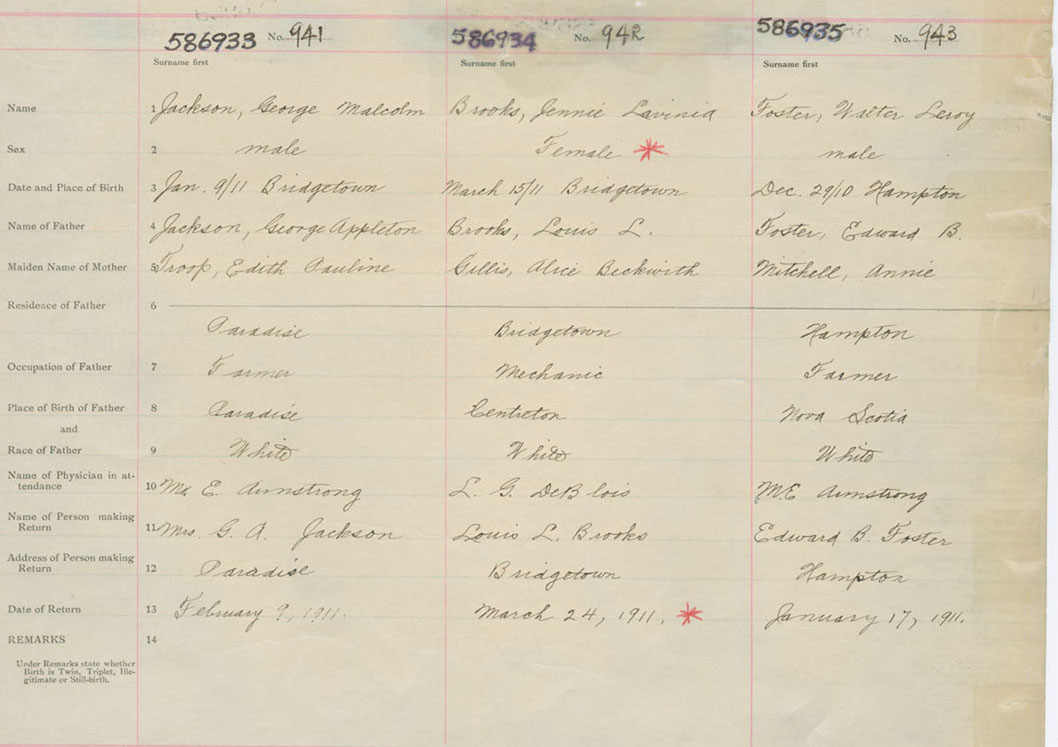 586933 No. 941 586934 No. 942 586935 No. 943
Surname first Surname first Surname first
Name 1 Jackson, George Malcolm Brooks, Jennie Lavinia Foster, Walter Leroy
Sex 2 male Female * male
Date and Place of Birth 3 Jan. 9/11 Bridgetown March 15/11 Bridgetown Dec. 29/10 Hampton
Name of Father 4 Jackson, George Appleton Brooks, Louis L. Foster, Edward B.
Maiden Name of Mother 5 Troop, Edith Pauline Gillis, Alice Beckwith Mitchell, Annie
Residence of Father 6
Paradise Bridgetown Hampton
Occupation of Father 7 Farmer Mechanic Farmer
Place of Birth of Father 8 Paradise Centreton Nova Scotia
and
Race of Father 9 White White White
Name of Physician in at-
tendance 10 M. E. Armstrong L. G. DeBlois M.E Armstrong
Name of Person making
Return 11 Mrs. G. A. Jackson Louis L. Brooks Edward B. Foster
Address of Person making
Return 12 Paradise Bridgetown Hampton
Date of Return 13 February 9, 1911. March 24, 1911. * January 17, 1911.
REMARKS 14
Under Remarks state whether
Birth is Twin, Triplet, Ille-
gitimate or Still-birth.